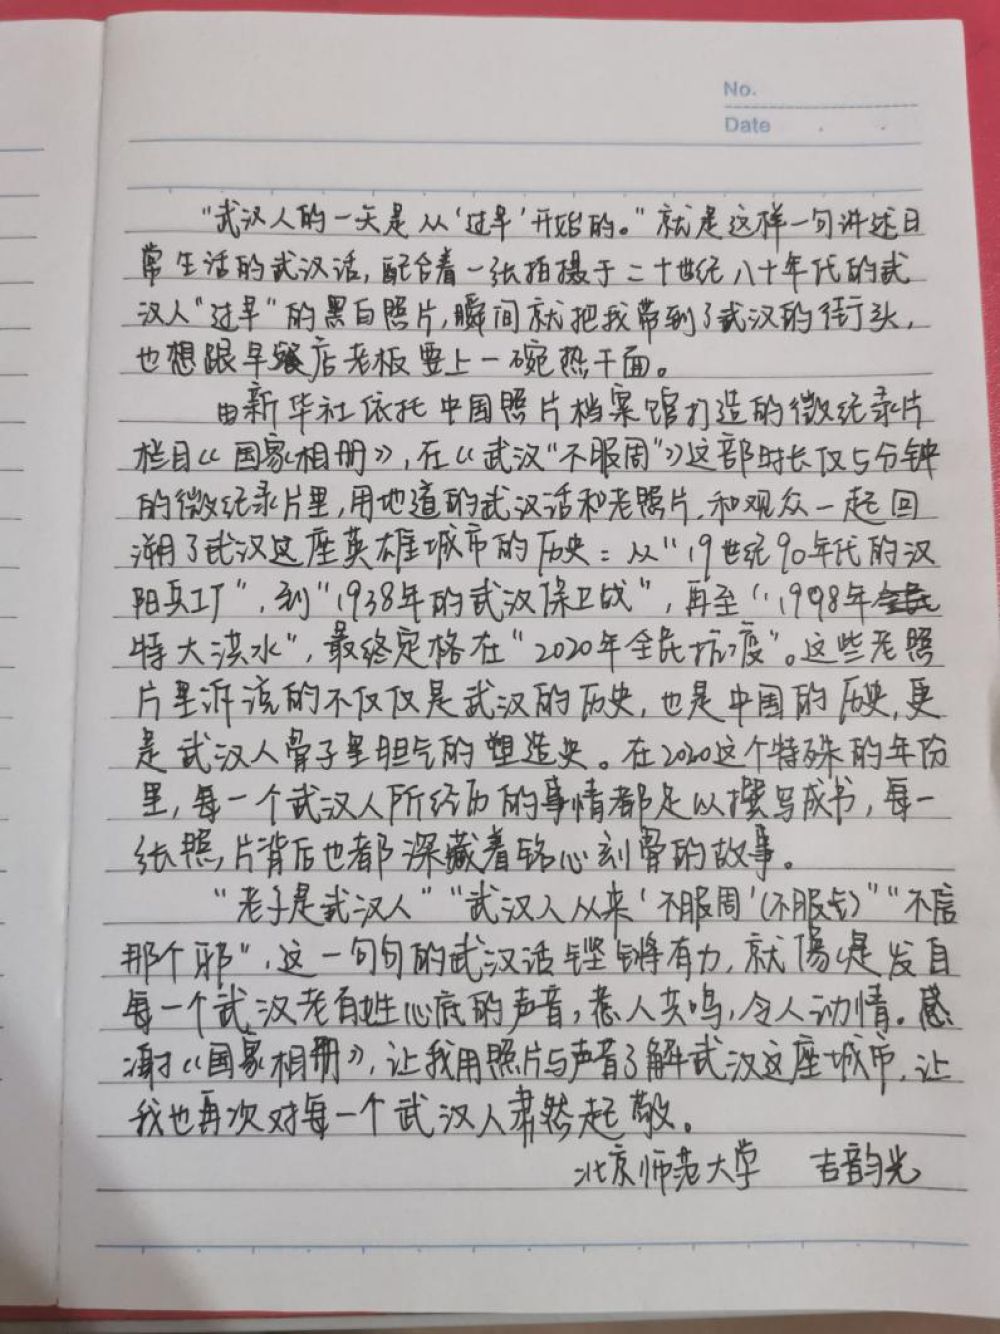 No.
Date
“武汉人的一天是从‘过早’开始的。”就是这样一句讲述日
常生活的武汉话,配合着一张拍摄于二十世纪八十年代的武
汉人“过早”的黑白照片,瞬间就把我带到了武汉的街头,
也想跟早餐店老板要上一碗热干面。
由新华社依托中国照片档案馆打造的微纪录片
栏目《国家相册》,在《武汉“不服周”》这部时长仅5分钟
的微纪录片里,用地道的武汉话和老照片,和观众一起回
溯了武汉这座英雄城市的历史:从“19世纪90年代的汉
阳兵工厂”,到“1938年的武汉保卫战”,再至“1998年
特大洪水”,最终定格在“2020年全民抗疫”。这些老照
片里诉说的不仅仅是武汉的历史,也是中国的历史,更
是武汉人骨子里胆气的塑造史。在2020这个特殊的年份
里,每一个武汉人所经历的事情都足以撰写成书,每一
张照片背后也都深藏着铭心刻骨的故事。
“老子是武汉人”“武汉人从来‘不服周’(不服气)”“不信
那个邪”,这一句句的武汉话铿锵有力,就像是发自
每一个武汉老百姓心底的声音,惹人共鸣,令人动情。感
谢《国家相册》,让我用照片与声音了解武汉这座城市,让
我也再次对每一个武汉人肃然起敬。
北京师范大学 吉韵光